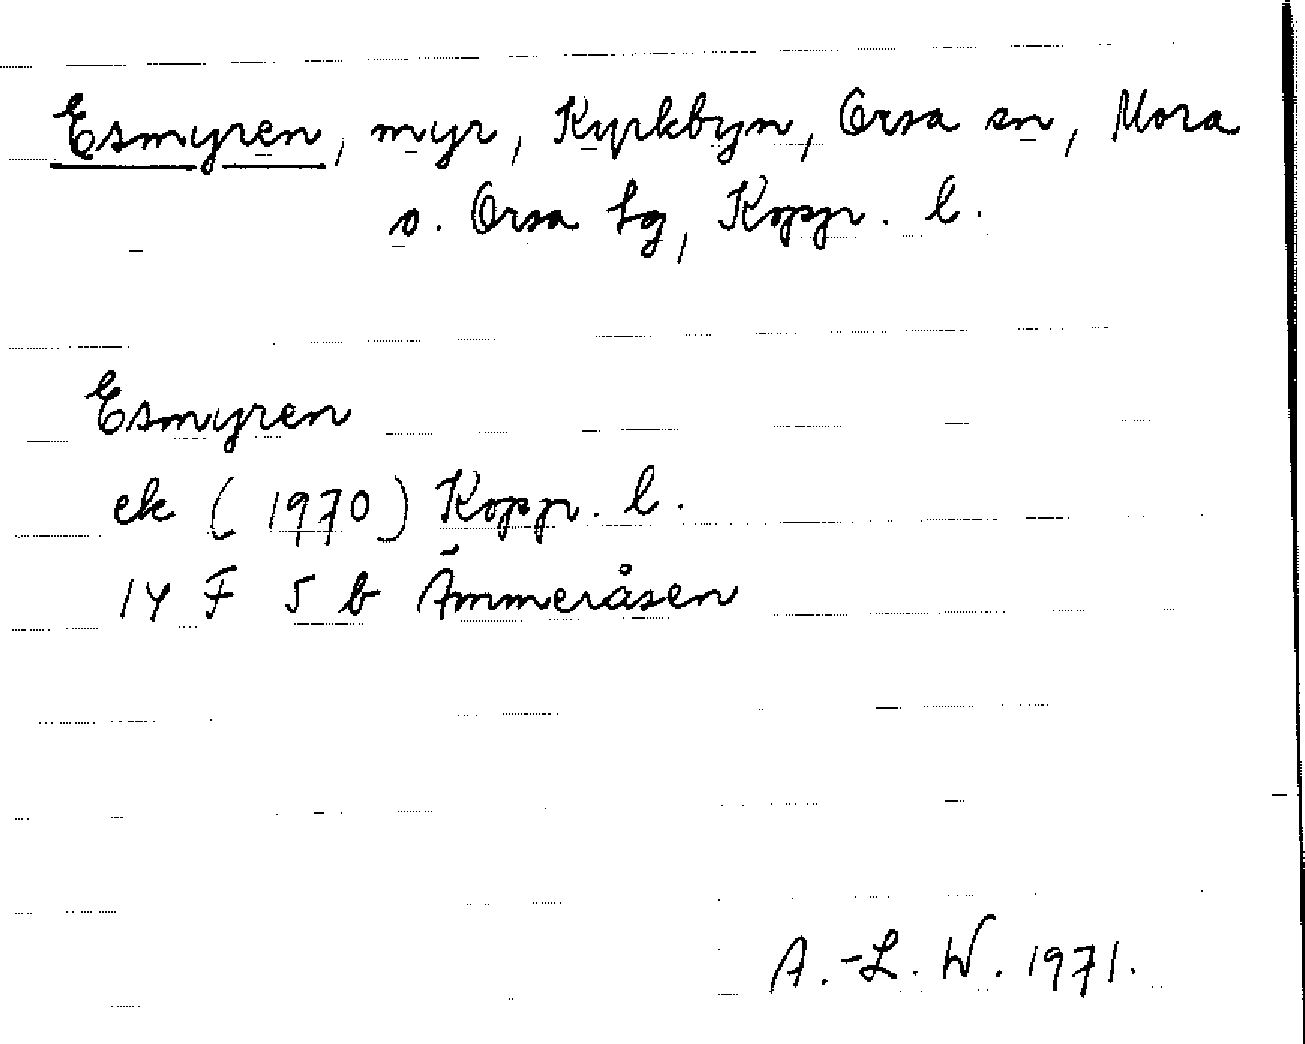 Esmyren, myr, Kyrkbyn, Orsa sn, Mora
o. Orsa tg, Koppr. l.
Esmyren
ek (1970) Koppr. l.
14 F 5 b Ämmeråsen
A.-L. W. 1971.